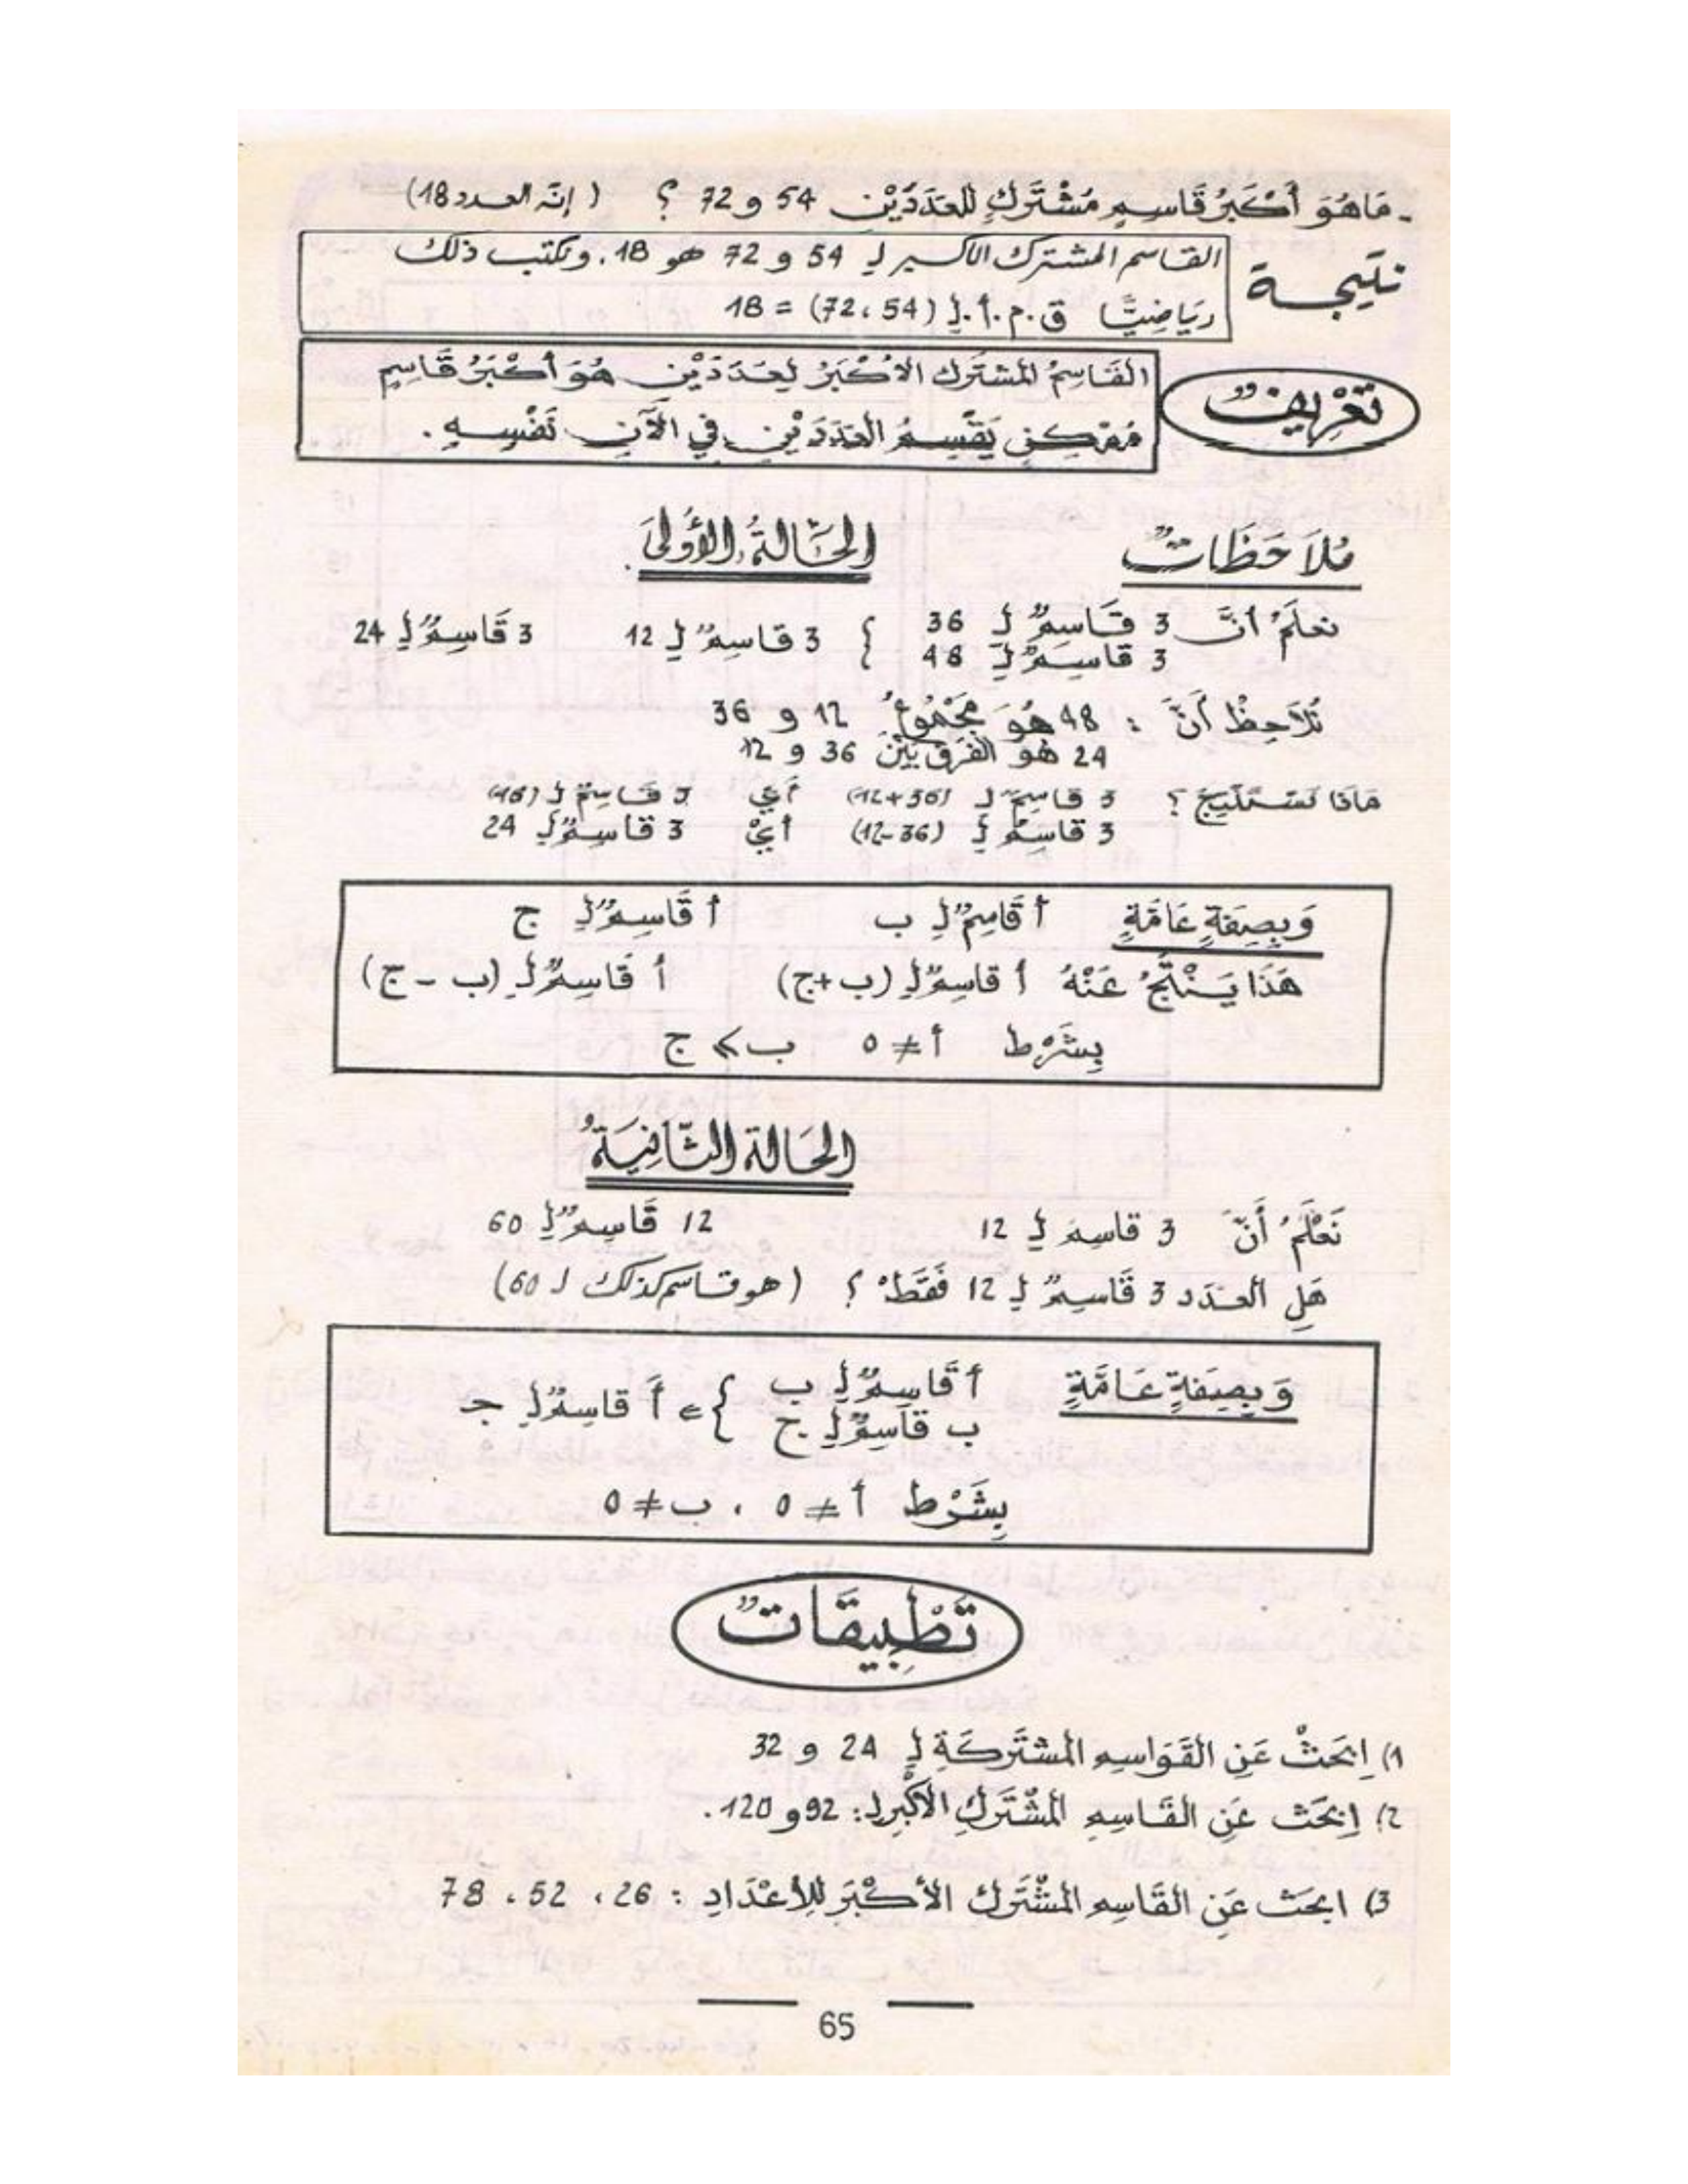 - مَا هُوَ أَكْبَرُ قَاسِمٍ مُشْتَرَكٍ لِلْعَدَدَيْنِ 54 و 72 ؟ ( إنّه العدد 18)
نتيجة
القاسم المشترك الأكبر لِـ 54 و 72 هو 18. ونكتب ذلك
رِيَاضِيًّا ق.م.أ.لِـ (54، 72) = 18
تَعْرِيفٌ
القَاسِمُ المشتَرك الأَكْبَرُ لِعَدَدَيْنِ هُوَ أَكْبَرُ قَاسِمٍ
مُمْكِنٍ يَقْسِمُ العَدَدَيْنِ فِي الآنِ نَفْسِهِ.
مُلاَحَظَاتٌ
الحَالَةُ الأُولَى.
نعلَمُ أنَّ 3 قَاسِمٌ لِـ 36 { 3 قاسِمٌ لِـ 12 3 قَاسِمٌ لِـ 24
3 قاسِمٌ لِـ 48
نُلاَحِظُ أَنَّ : 48 هُوَ مَجْمُوعُ 12 و 36
24 هُوَ الفَرقُ بَيْنَ 36 و 12
مَاذَا نَسْتَنْتِجُ ؟ 3 قاسِمٌ لِـ (36+12) أَيْ 3 قَاسِمٌ لِـ (48)
3 قاسِمٌ لِـ (36-12) أَيْ 3 قاسِمٌ لِـ 24
وَبِصِفَةٍ عَامَّةٍ أ قَاسِمٌ لِـ ب أ قَاسِمٌ لِـ ج
هَذَا يَنْتُجُ عَنْهُ أ قاسِمٌ لِـ (ب+ج) أ قَاسِمٌ لِـ (ب - ج)
بِشَرْطِ أ ≠ 0 ب ⩾ ج
الحَالة الثَّانِيَةُ
نَعْلَمُ أَنَّ 3 قاسِمٌ لِـ 12 12 قَاسِمٌ لِـ 60
هَلِ العَدَد 3 قَاسِمٌ لِـ 12 فَقَطْ ؟ (هو قاسم كذلك لـ 60)
وَبِصِفَةٍ عَامَّةٍ أ قَاسِمٌ لِـ ب } = أ قاسِمٌ لِـ ج
ب قَاسِمٌ لِـ ج
بِشَرْطِ أ ≠ 0 ، ب ≠ 0
تَطْبِيقَاتٌ
1) اِبْحَثْ عَنِ القَوَاسِمِ المشتَرَكَةِ لِـ 24 و 32
2) اِبْحَث عَنِ القَاسِمِ المُشْتَرَكِ الأَكْبَرِ لِـ: 92 و 120.
3) ابحَث عَنِ القَاسِمِ المشْتَرَكِ الأَكْبَرِ لِلأَعْدَادِ : 26 ، 52 ، 78
65